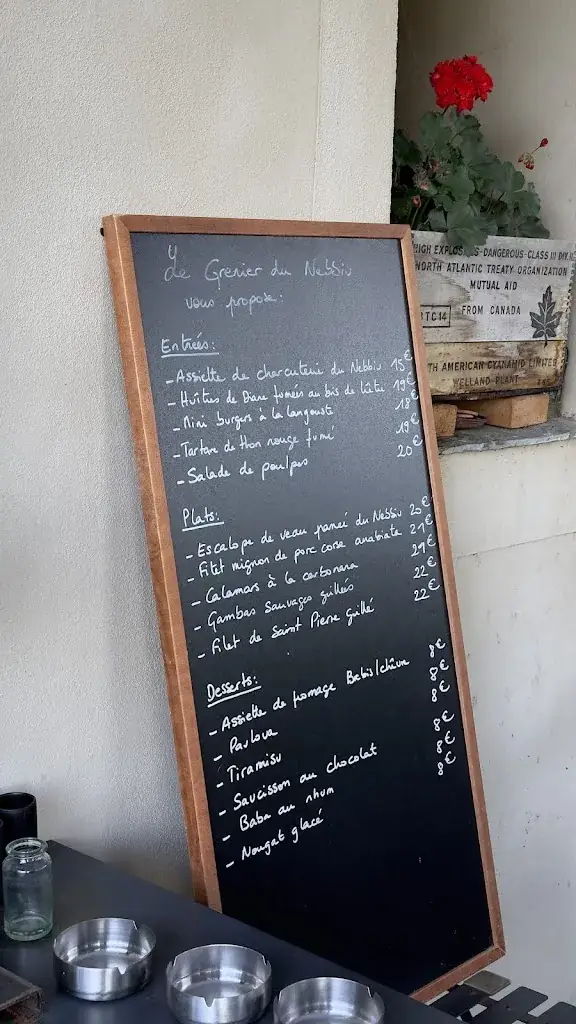 Le Grenier du Nebbiu
vous propose:
Entrées:
- Assiette de charcuterie du Nebbiu 15€
- Huîtres de Diane fumées au bois de hêtre 19€
- Mini burgers à la langouste 18€
- Tartare de thon rouge fumé 19€
- Salade de poulpes 20€
Plats:
- Escalope de veau panée du Nebbiu 20€
- Filet mignon de porc corse arrabiata 21€
- Calamars à la carbonara 21€
- Gambas sauvages grillés 22€
- Filet de Saint Pierre grillé 22€
Desserts:
- Assiette de fromage Brebis/chèvre 8€
- Pavlova 8€
- Tiramisu 8€
- Saucisson au chocolat 8€
- Baba au rhum 8€
- Nougat glacé 8€
HIGH EXPLOSIVES-DANGEROUS-CLASS III DIV.
NORTH ATLANTIC TREATY ORGANIZATION
MUTUAL AID
FROM CANADA
BTC14
TH AMERICAN CYANAMID LIMITED
WELLAND PLANT